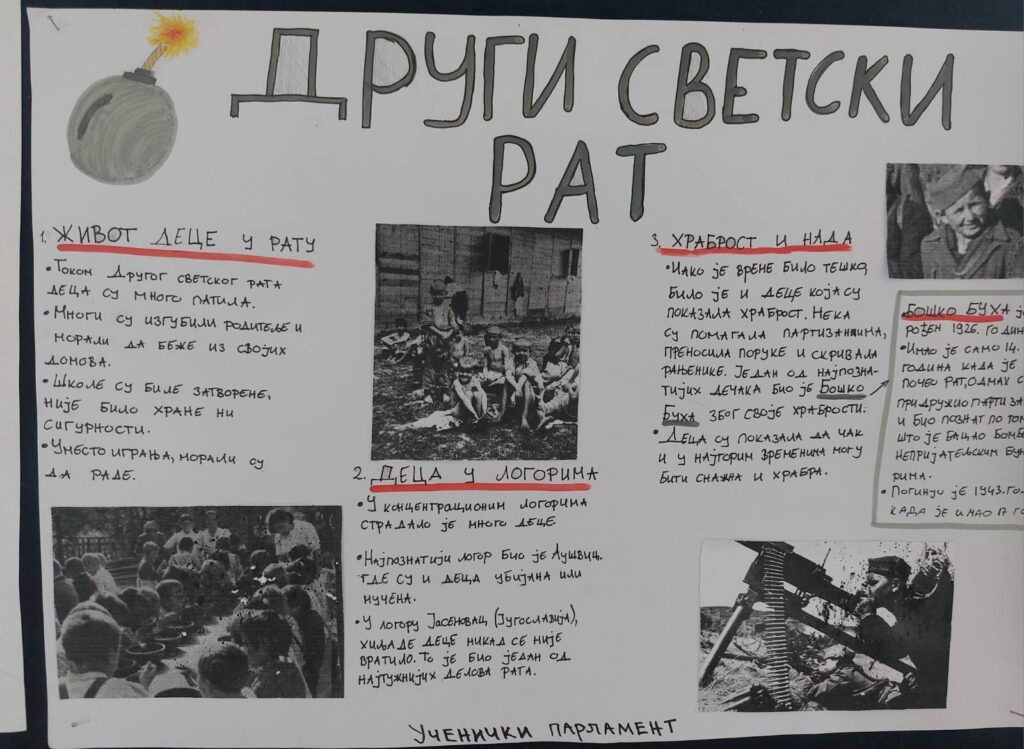 ДРУГИ СВЕТСКИ
РАТ
1. ЖИВОТ ДЕЦЕ У РАТУ
• Током Другог светског рата
деца су много патила.
• Многи су изгубили родитеље и
морали да беже из својих
домова.
• Школе су биле затворене,
није било хране ни
сигурности.
• Уместо играња, морали су
да раде.
2. ДЕЦА У ЛОГОРИМА
• У концентрационим логорима
страдало је много деце
• Најпознатији логор био је Аушвиц.
где су и деца убијана или
мучена.
• У логору Јасеновац (Југославија),
хиљаде деце никад се није
вратило. То је био један од
најтужнијих делова рата.
3. ХРАБРОСТ И НАДА
• Иако је време било тешко,
било је и деце која су
показала храброст. Нека
су помагала партизанима,
преносила поруке и скривала
рањенике. Један од најпозна-
тијих дечака био је Бошко
Буха због своје храбрости.
• Деца су показала да чак
и у најгорим временима могу
бити снажна и храбра.
БОШКО БУХА је
рођен 1926. године
• Имао је само 14.
година када је
почео рат, одмах с
придружио партиза
и био познат по том
што је бацао бомб
непријатељским бун
рима.
• Погинуо је 1943. год
када је имао 17 го
УЧЕНИЧКИ ПАРЛАМЕНТ